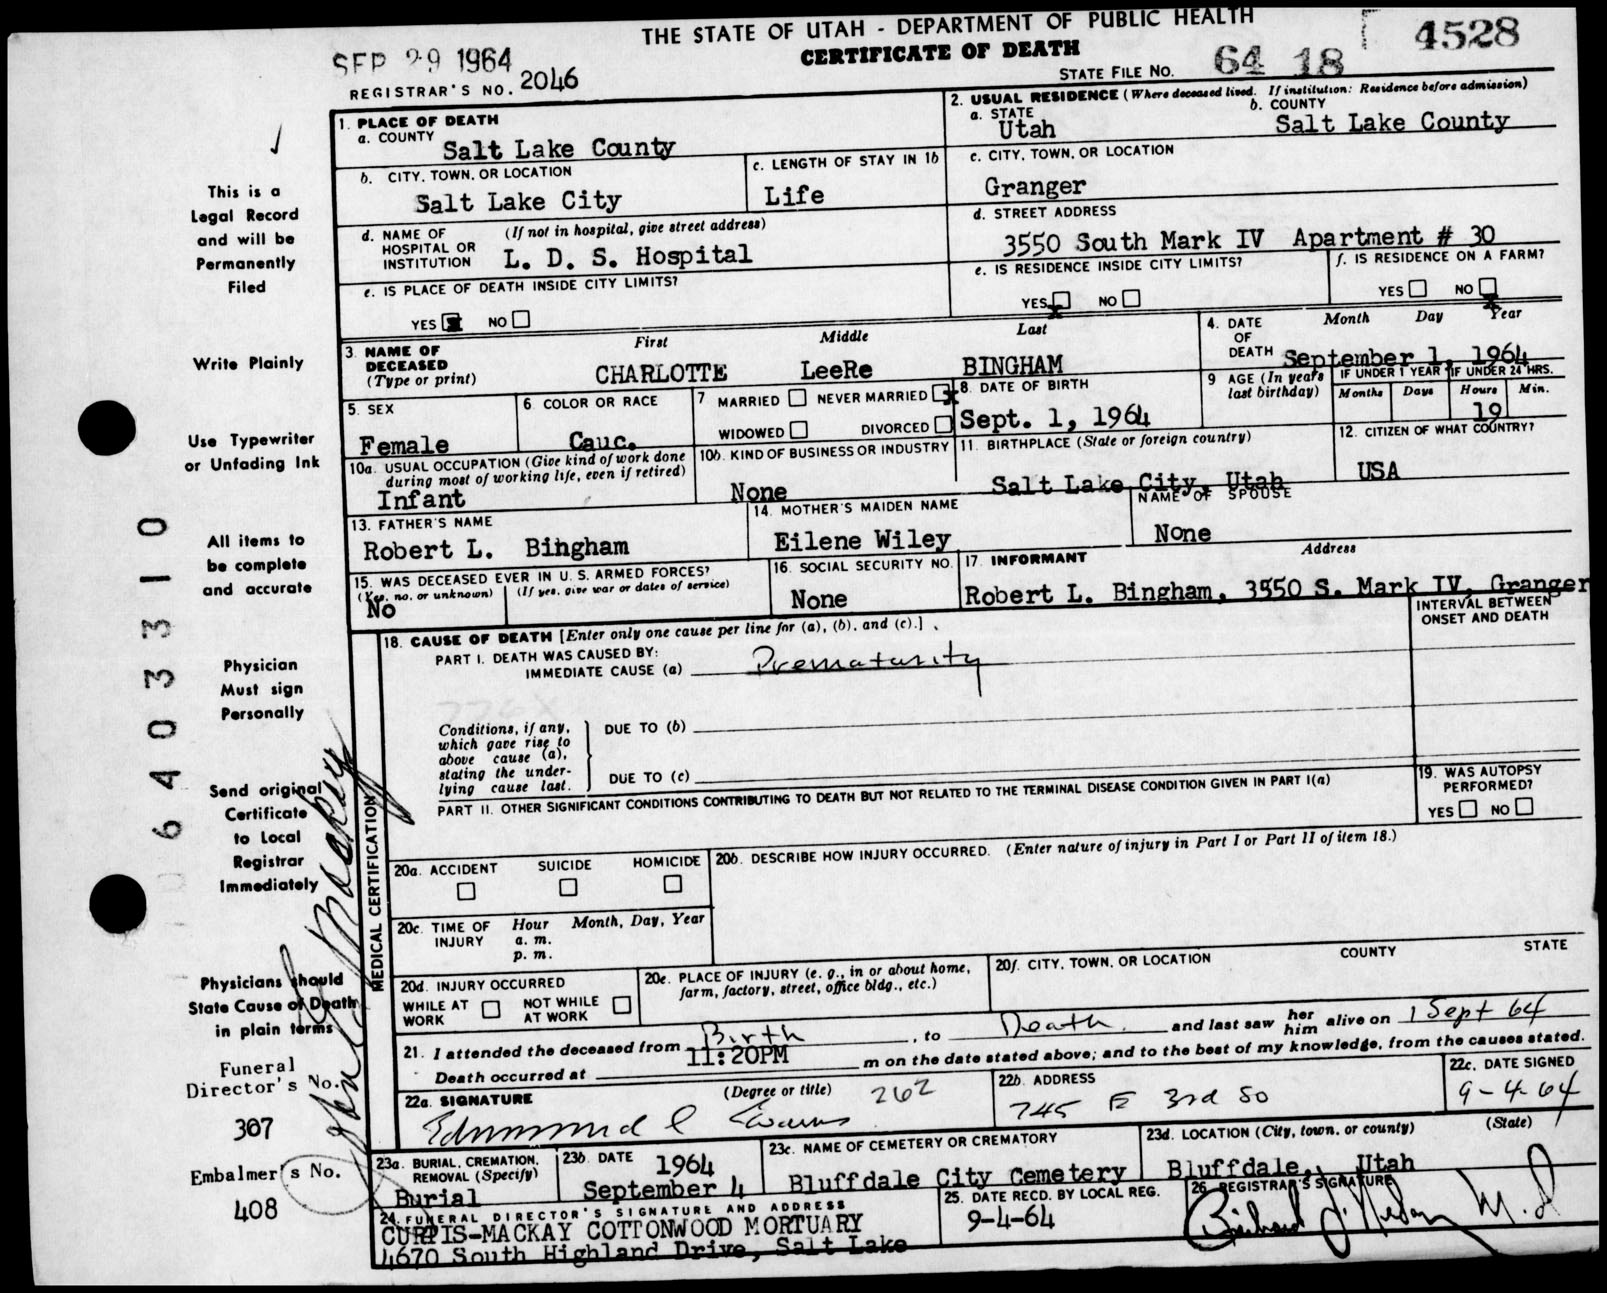 THE STATE OF UTAH - DEPARTMENT OF PUBLIC HEALTH
CERTIFICATE OF DEATH
SEP 29 1964
REGISTRAR'S NO. 2046
STATE FILE NO. 64 18 4528
1. PLACE OF DEATH
a. COUNTY Salt Lake County
b. CITY, TOWN, OR LOCATION
Salt Lake City
c. LENGTH OF STAY IN 1b
Life
d. NAME OF HOSPITAL OR INSTITUTION (If not in hospital, give street address)
L. D. S. Hospital
e. IS PLACE OF DEATH INSIDE CITY LIMITS?
YES X NO
2. USUAL RESIDENCE (Where deceased lived. If institution: Residence before admission)
a. STATE Utah
b. COUNTY Salt Lake County
c. CITY, TOWN, OR LOCATION
Granger
d. STREET ADDRESS
3550 South Mark IV Apartment # 30
e. IS RESIDENCE INSIDE CITY LIMITS?
YES X NO
f. IS RESIDENCE ON A FARM?
YES NO X
3. NAME OF DECEASED (Type or print)
First Middle Last
CHARLOTTE LeeRe BINGHAM
4. DATE OF DEATH Month Day Year
September 1, 1964
5. SEX
Female
6. COLOR OR RACE
Cauc.
7 MARRIED NEVER MARRIED X
WIDOWED DIVORCED
8. DATE OF BIRTH
Sept. 1, 1964
9 AGE (In years last birthday)
IF UNDER 1 YEAR IF UNDER 24 HRS.
Months Days Hours Min.
19
10a. USUAL OCCUPATION (Give kind of work done during most of working life, even if retired)
Infant
10b. KIND OF BUSINESS OR INDUSTRY
None
11. BIRTHPLACE (State or foreign country)
Salt Lake City, Utah
12. CITIZEN OF WHAT COUNTRY?
USA
13. FATHER'S NAME
Robert L. Bingham
14. MOTHER'S MAIDEN NAME
Eilene Wiley
NAME OF SPOUSE
None
15. WAS DECEASED EVER IN U. S. ARMED FORCES?
(Yes, no, or unknown) (If yes, give war or dates of service)
No
16. SOCIAL SECURITY NO.
None
17. INFORMANT Address
Robert L. Bingham, 3550 S. Mark IV, Granger
MEDICAL CERTIFICATION
18. CAUSE OF DEATH [Enter only one cause per line for (a), (b), and (c).]
INTERVAL BETWEEN ONSET AND DEATH
PART I. DEATH WAS CAUSED BY:
IMMEDIATE CAUSE (a) Prematurity
Conditions, if any, which gave rise to above cause (a), stating the underlying cause last.
DUE TO (b)
DUE TO (c)
PART II. OTHER SIGNIFICANT CONDITIONS CONTRIBUTING TO DEATH BUT NOT RELATED TO THE TERMINAL DISEASE CONDITION GIVEN IN PART I(a)
19. WAS AUTOPSY PERFORMED?
YES NO
20a. ACCIDENT SUICIDE HOMICIDE
20b. DESCRIBE HOW INJURY OCCURRED. (Enter nature of injury in Part I or Part II of item 18.)
20c. TIME OF INJURY Hour Month, Day, Year
a. m.
p. m.
20d. INJURY OCCURRED
WHILE AT WORK NOT WHILE AT WORK
20e. PLACE OF INJURY (e. g., in or about home, farm, factory, street, office bldg., etc.)
20f. CITY, TOWN, OR LOCATION COUNTY STATE
21. I attended the deceased from Birth, to Death. and last saw her him alive on 1 Sept 64
Death occurred at 11:20PM m on the date stated above; and to the best of my knowledge, from the causes stated.
22a. SIGNATURE (Degree or title) 262
Edmmund C Evans
22b. ADDRESS
745 E 3rd So
22c. DATE SIGNED
9-4-64
23a. BURIAL, CREMATION, REMOVAL (Specify)
Burial
23b. DATE 1964
September 4
23c. NAME OF CEMETERY OR CREMATORY
Bluffdale City Cemetery
23d. LOCATION (City, town, or county) (State)
Bluffdale, Utah
24. FUNERAL DIRECTOR'S SIGNATURE AND ADDRESS
CURTIS-MACKAY COTTONWOOD MORTUARY
4670 South Highland Drive, Salt Lake
25. DATE RECD. BY LOCAL REG.
9-4-64
26. REGISTRAR'S SIGNATURE
M.D
This is a
Legal Record
and will be
Permanently
Filed
Write Plainly
Use Typewriter
or Unfading Ink
All items to
be complete
and accurate
Physician
Must sign
Personally
Send original
Certificate
to Local
Registrar
Immediately
Physicians should
State Cause of Death
in plain terms
Funeral
Director's No.
307
Embalmer's No.
408
6403310